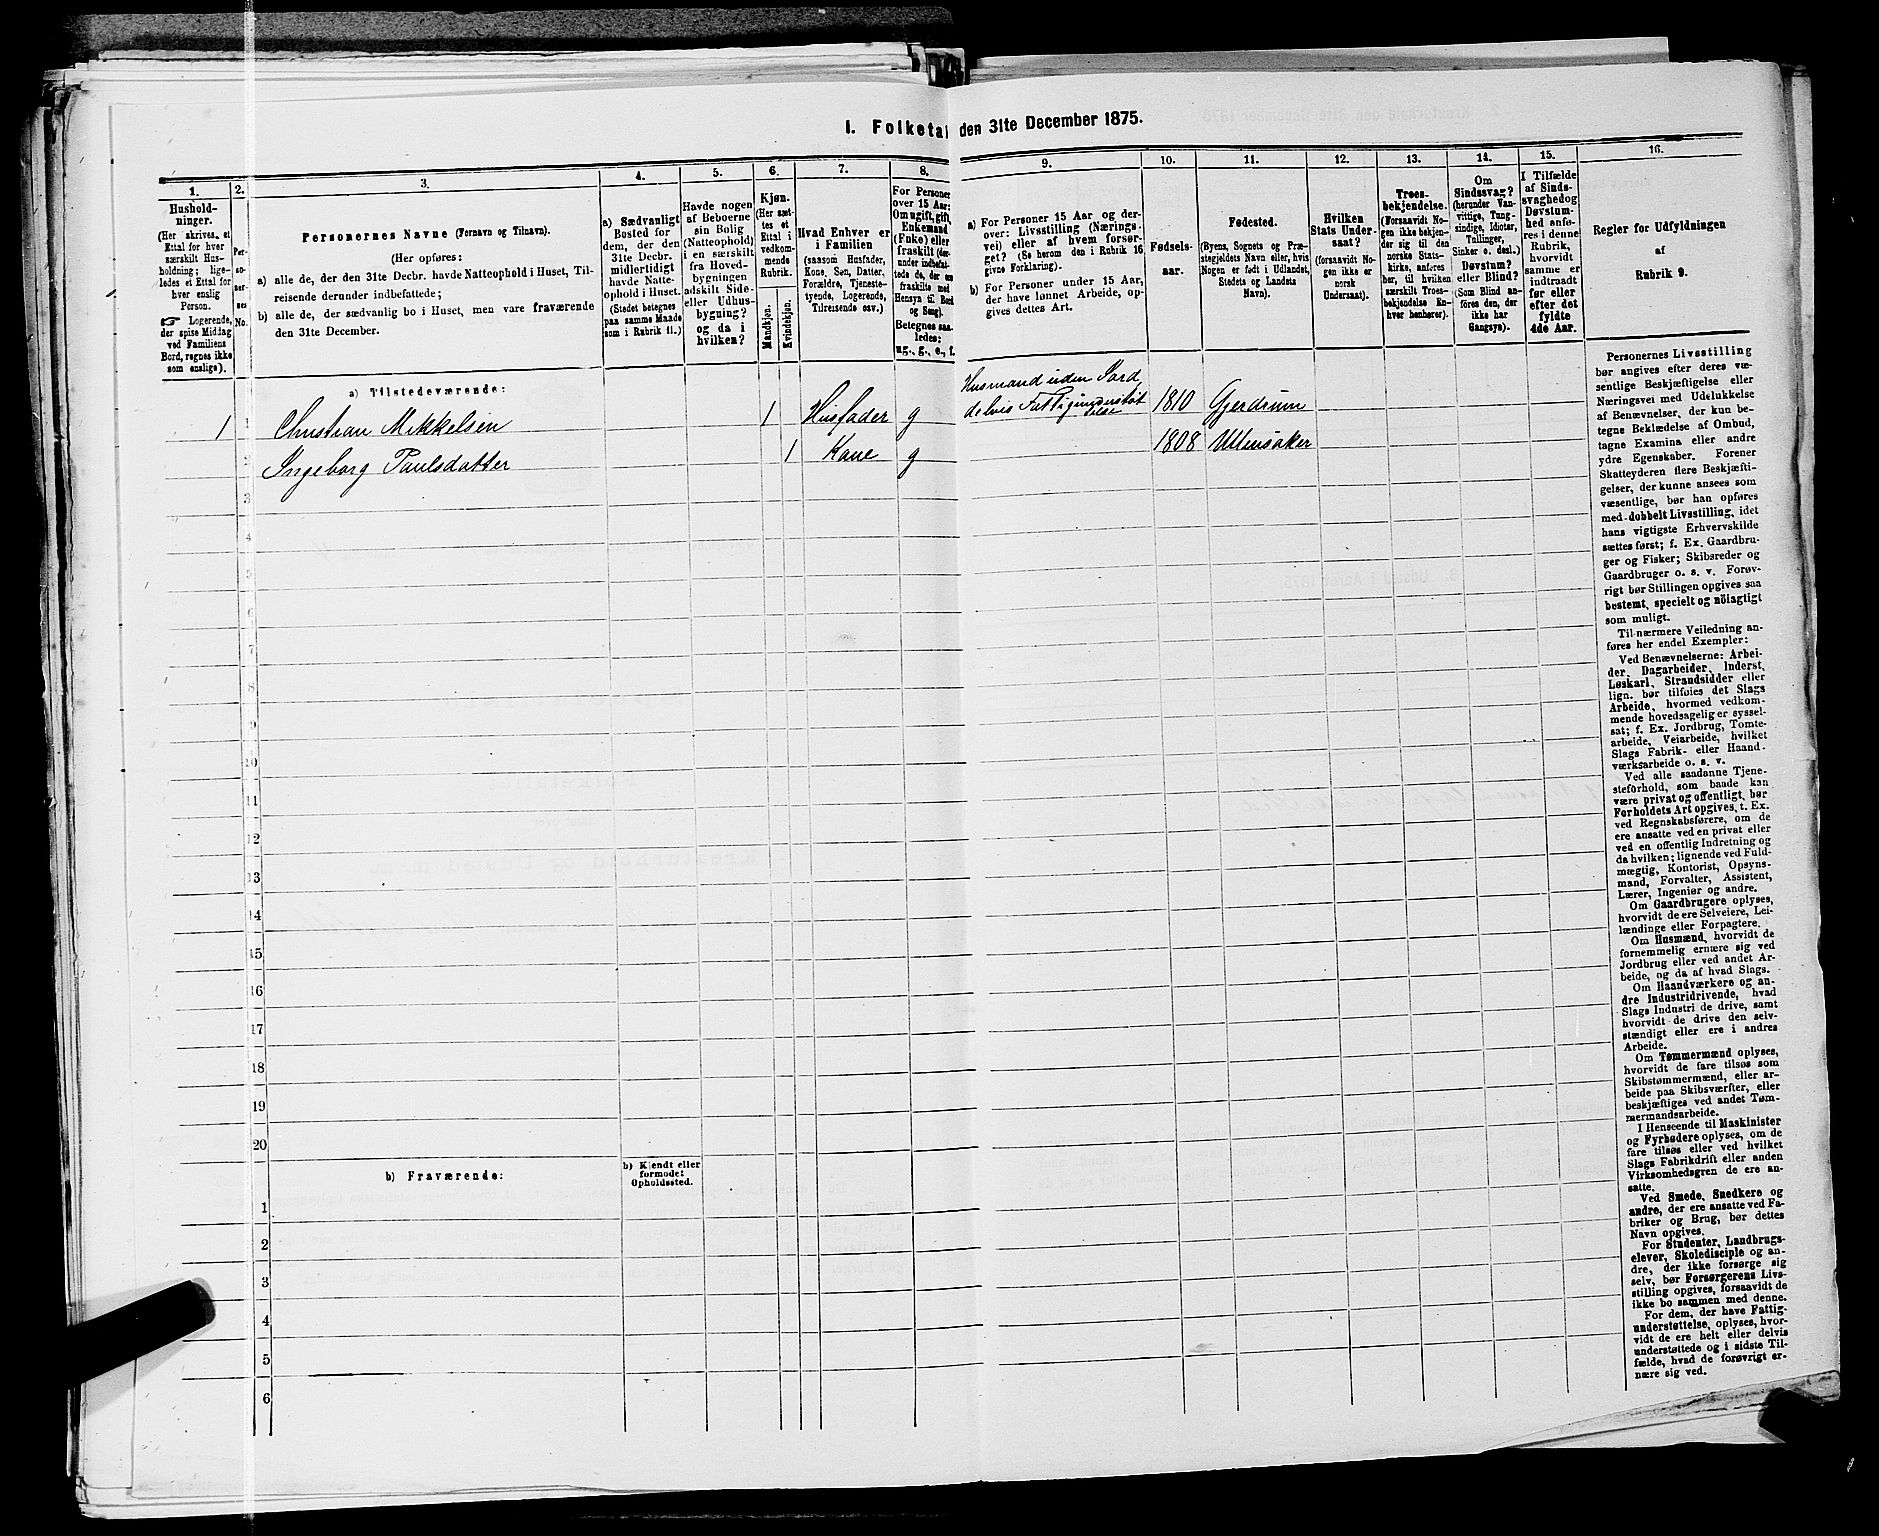 I. Folketal den 31te December 1875.
1.
Hushold-
ninger.
(Her skrives et
Ettal for hver
særskilt Hus-
holdning; lige-
ledes et Ettal for
hver enslig
Person.
☞ Logerende,
der spise Middag
ved Familiens
Bord, regnes ikke
som enslige).
2.
Per-
so-
ner-
nes
No.
3.
Personernes Navne (Fornavn og Tilnavn).
(Her opføres:
a) alle de, der den 31te Decbr. havde Natteophold i Huset, Til-
reisende derunder indbefattede;
b) alle de, der sædvanlig bo i Huset, men vare fraværende
den 31te December.
4.
a) Sædvanligt
Bosted for
dem, der den
31te Decbr.
midlertidigt
havde Natte-
ophold i Huset.
(Stedet betegnes
paa samme Maade
som i Rubrik 11.)
5.
Havde nogen
af Beboerne
sin Bolig
(Natteophold)
i en særskilt
fra Hoved-
bygningen
adskilt Side-
eller Udhus-
bygning?
og da i
hvilken?
6.
Kjøn.
(Her sæt-
tes et
Ettal i
vedkom-
mende
Rubrik.
Mandkjøn.
Kvindekjøn.
7.
Hvad Enhver er
i Familien
(saasom Husfader,
Kone, Søn, Datter,
Forældre, Tjeneste-
tyende, Logerende,
Tilreisende osv.)
8.
For Personer
over 15 Aar:
Om ugift, gift,
Enkemand
(Enke) eller
fraskilt (der-
under indbefat-
tede de, der ere
fraskilte med
Hensyn til Bord
og Seng).
Betegnes saa-
ledes:
ug., g., e., f.
9.
a) For Personer 15 Aar og der-
over: Livsstilling (Nærings-
vei) eller af hvem forsør-
get? (Se herom den i Rubrik 16
givne Forklaring).
b) For Personer under 15 Aar,
der have lønnet Arbeide, op-
gives dettes Art.
10.
Fødsels-
aar.
11.
Fødested.
(Byens, Sognets og Præ-
stegjeldets Navn eller, hvis
Nogen er født i Udlandet,
Stedets og Landets
Navn).
12.
Hvilken
Stats Under-
saat?
(forsaavidt No-
gen ikke er
norsk
Undersaat).
13.
Troes-
bekjendelse.
(Forsaavidt No-
gen ikke bekjen-
der sig til den
norske Stats-
kirke, anføres
her, til hvilken
særskilt Troes-
bekjendelse En-
hver henhører).
14.
Om
Sindssvag?
(herunder Van-
vittige, Tung-
sindige, Idioter,
Tullinger,
Sinker o. desl.)
Døvstum?
eller Blind?
(Som Blind an-
føres den, der
ikke har
Gangsyn).
15.
I Tilfælde
af Sinds-
svaghed og
Døvstum-
hed anfø-
res i denne
Rubrik,
hvorvidt
samme er
indtraadt
før eller
efter det
fyldte
4de Aar.
16.
Regler for Udfyldningen
af
Rubrik 9.
a) Tilstedeværende:
Husmand uden Jord
delvis Fattigunderstøt
telse
1 1 Christian Mikkelsen 1 Husfader g 1810 Gjerdrum
2 Ingeborg Paulsdatter 1 Kone g 1808 Ullensaker
3
4
5
6
7
8
9
10
11
12
13
14
15
16
17
18
19
20
b) Fraværende:
b) Kjendt eller
formodet
Opholdssted.
1
2
3
4
5
6
Personernes Livsstilling
bør angives efter deres væ-
sentlige Beskjæftigelse eller
Næringsvei med Udelukkelse
af Benævnelser, der kun be-
tegne Beklædelse af Ombud,
tagne Examina eller andre
ydre Egenskaber. Forener
Skatteyderen flere Beskjæfti-
gelser, der kunne ansees som
væsentlige, bør han opføres
med dobbelt Livsstilling, idet
hans vigtigste Erhvervskilde
sættes først; f. Ex. Gaardbru-
ger og Fisker; Skibsreder og
Gaardbruger o. s. v. Forøv-
rigt bør Stillingen opgives saa
bestemt, specielt og nöiagtigt
som muligt.
Til nærmere Veiledning an-
føres her endel Exempler:
Ved Benævnelserne: Arbei-
der, Dagarbeider, Inderst,
Løskarl, Strandsidder eller
lign. bør tilføies det Slags
Arbeide, hvormed vedkom-
mende hovedsagelig er syssel-
sat; f. Ex. Jordbrug, Tomte-
arbeide, Veiarbeide, hvilket
Slags Fabrik- eller Haand-
værksarbeide o. s. v.
Ved alle saadanne Tjene-
steforhold, som baade kan
være privat og offentligt, bør
Forholdets Art opgives, t. Ex.
ved Regnskabsførere, om de
ere ansatte ved en privat eller
ved en offentlig Indretning og
da hvilken; lignende ved Fuld-
mægtig, Kontorist, Opsyns-
mand, Forvalter, Assistent,
Lærer, Ingeniør og andre.
Om Gaardbrugere oplyses,
hvorvidt de ere Selveiere, Lei-
lændinge eller Forpagtere.
Om Husmænd, hvorvidt de
fornemmelig ernære sig ved
Jordbrug eller ved andet Ar-
beide, og da af hvad Slags.
Om Haandværkere og an-
dre Industridrivende, hvad
Slags Industri de drive, samt
hvorvidt de drive den selv-
stændigt eller ere i andres
Arbeide.
Om Tømmermænd oplyses,
hvorvidt de fare tilsøs som
Skibstømmermænd, eller ar-
beide paa Skibsværfter, eller
beskjæftiges ved andet Tøm-
mermandsarbeide.
I Henseende til Maskinister
og Fyrbødere oplyses, om de
fare tilsøs eller ved hvilket
Slags Fabrikdrift eller anden
Virksomhedsgren de ere an-
satte.
Ved Smede, Snedkere og
andre, der ere ansatte ved Fa-
briker og Brug, bør dettes
Navn opgives.
For Studenter, Landbrugs-
elever, Skoledisciple og an-
dre, der ikke forsørge sig
selv, bør Forsørgerens Livs-
stilling opgives, forsaavidt de
ikke bo sammen med denne.
For dem, der have Fattig-
understøttelse, oplyses, hvor-
vidt de ere helt eller delvis
understøttede og i sidste Til-
fælde, hvad de forøvrigt er-
nære sig ved.